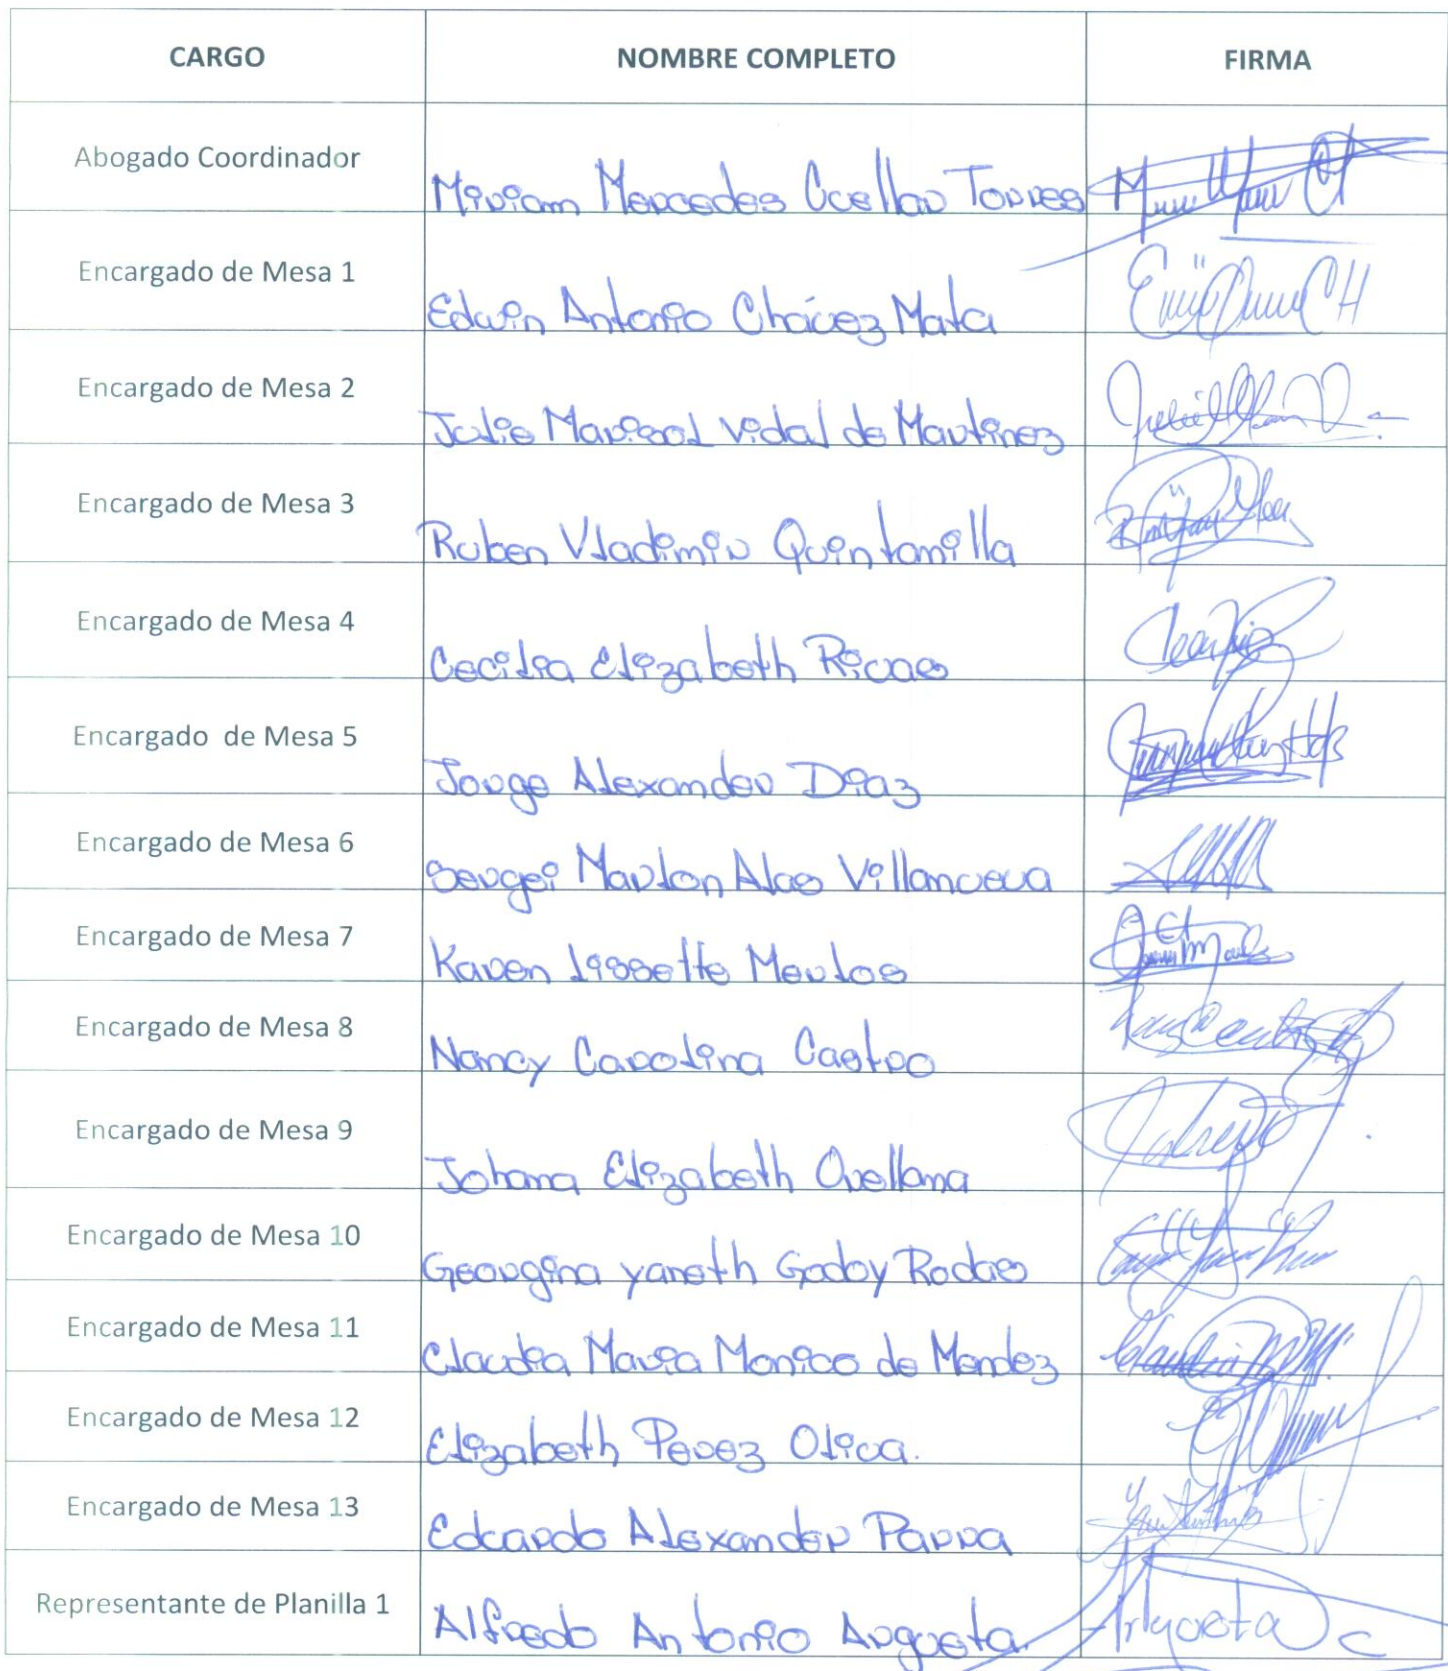 CARGO NOMBRE COMPLETO FIRMA
Abogado Coordinador Miriam Mercedes Cuellar Torres
Encargado de Mesa 1 Edwin Antonio Chávez Mata
Encargado de Mesa 2 Julie Marisol Vidal de Martinez
Encargado de Mesa 3 Ruben Vladimir Quintanilla
Encargado de Mesa 4 Cecilia Elizabeth Rivas
Encargado de Mesa 5 Jorge Alexander Diaz
Encargado de Mesa 6 Sergei Marlon Alas Villanueva
Encargado de Mesa 7 Karen Lissette Merlos
Encargado de Mesa 8 Nancy Carolina Castro
Encargado de Mesa 9 Johana Elizabeth Orellana
Encargado de Mesa 10 Georgina Yaneth Godoy Rodas
Encargado de Mesa 11 Claudia Maria Monico de Mendez
Encargado de Mesa 12 Elizabeth Perez Oliva.
Encargado de Mesa 13 Eduardo Alexander Parra
Representante de Planilla 1 Alfredo Antonio Argueta.